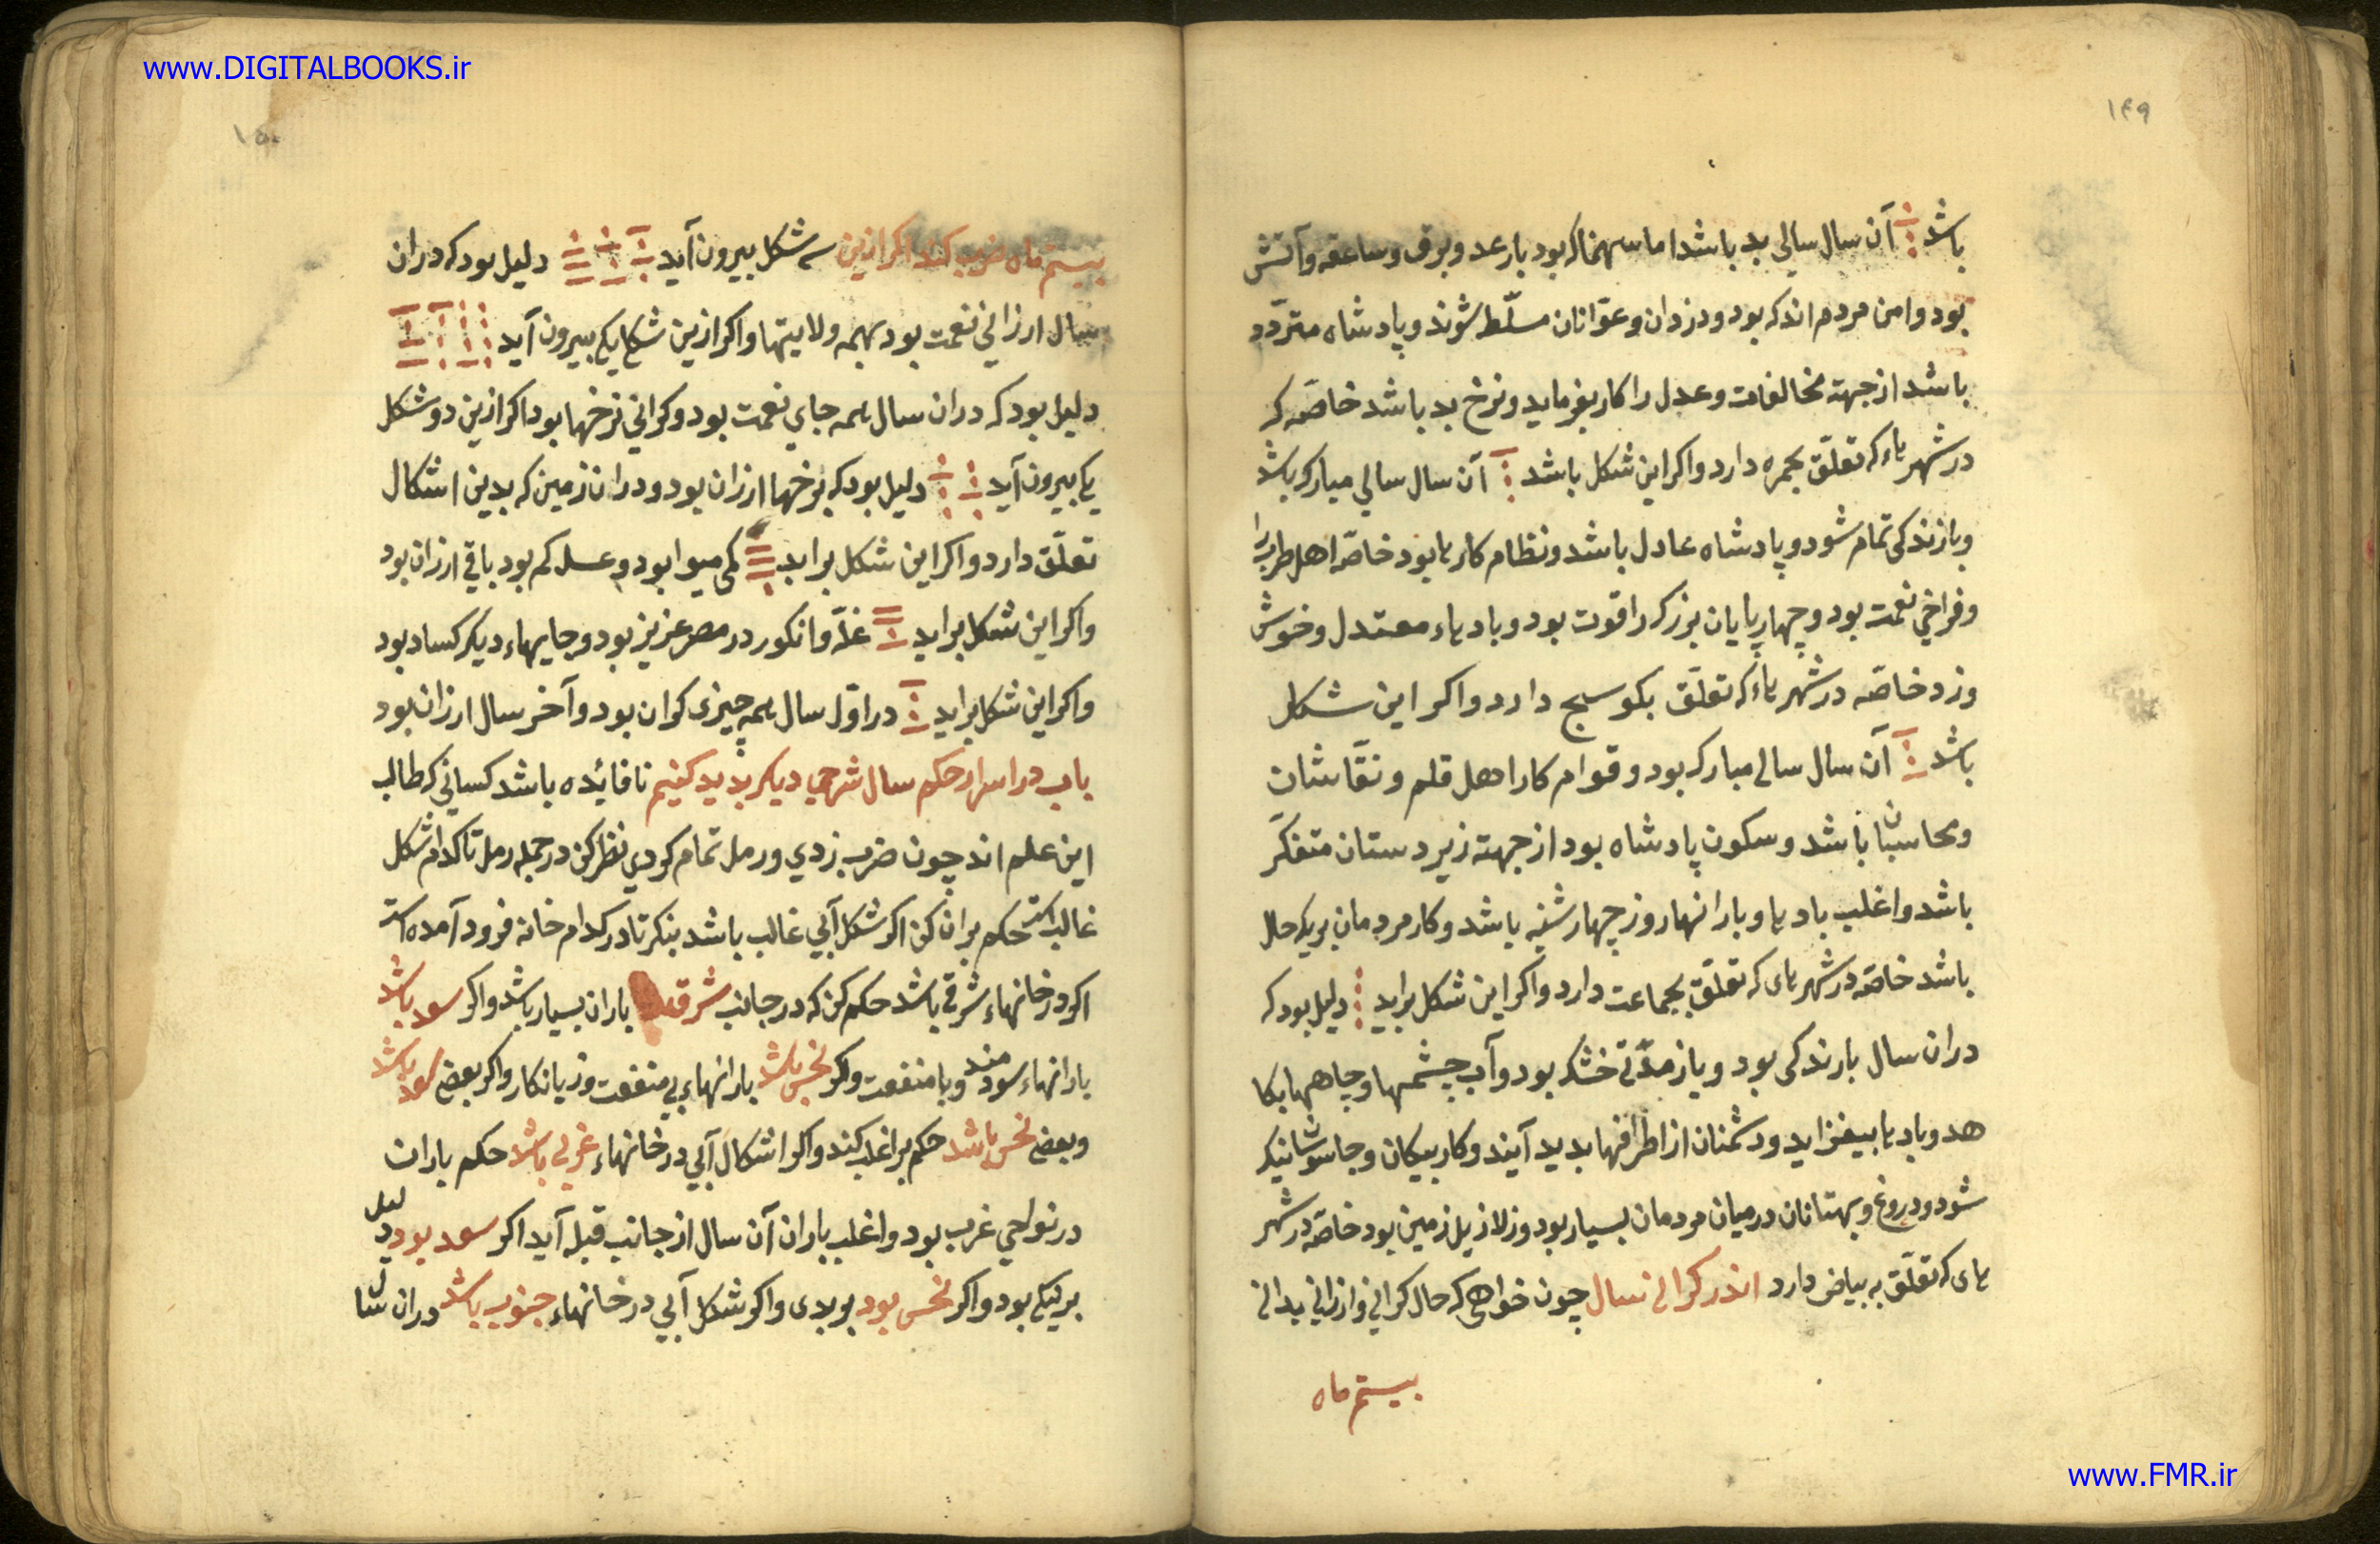 www.DIGITALBOOKS.ir
۱۴۹
باشد آن سال سالی بد باشد اما سهمناک بود با رعد و برق و ساعقه و آتش
بود و امن مردم اندک بود و دزدان و عوّانان مسلّط شوند و پادشاه متردّد
باشد از جهته مخالفات و عدل را کار بفرماید و نرخ بد باشد خاصّه که
در شهرهاء که تعلّق بحمره دارد و اکر این شکل باشد آن سال سالي مبارک باشد
و بارندکی تمام شود و پادشاه عادل باشد و نظام کارها بود خاصّه اهل طرب را
و فراخي نعمت بود و چهارپایان بزرک را قوت بود و بادهاء معتدل و خوش
وزد خاصّه در شهرهاء که تعلّق بکوسج دارد و اکر این شکل
باشد آن سال سالی مبارک بود و قوام کار اهل قلم و نقّاشان
و محاسبان باشد و سکون پادشاه بود از جهته زیردستان متفکّر
باشد و اغلب بادها و بارانها روز چهارشنبه باشد و کار مردمان بریک حال
باشد خاصّه در شهرهای که تعلّق بجماعت دارد و اکر این شکل براید دلیل بود که
دران سال بارندکی بود و باز مدّتی خشک بود و آب چشمها و چاهها بکا
هد و بادها بیفزاید و دشمنان از اطرافها بدید آیند و کار پیکان و جاسوسان نیک
شود و دروغ و بهتانان در میان مردمان بسیار بود و زلازیل زمین بود خاصّه در شهر
های که تعلّق به بیاض دارد اندر کرانی سال چون خواهی که حال کرانی و ارزانی بدانی
بیستم ماه
۱۵۰
بیستم ماه ضرب کند اکر ازین سه شکل بیرون آید دلیل بود که دران
سال ارزاني نعمت بود بهمه ولایتها و اکر ازین شکل یکي بیرون آید
دلیل بود که دران سال همه جاي نعمت بود و کراني نرخها بود اکر ازین دو شکل
یکي بیرون آید دلیل بود که نرخها ارزان بود و دران زمین که بدین اشکال
تعلّق دارد و اکر این شکل براید کمی میوا بود و عسل کم بود باقی ارزان بود
و اکر این شکل براید غلّه و انکور در مصر عزیز بود و جایهاء دیکر کساد بود
و اکر این شکل براید در اوّل سال همه چیزی کران بود و آخر سال ارزان بود
باب در اسرار حکم سال شرحي دیکر بدید کنیم تا فائده باشد کساني که طالب
این علم اند چون ضرب زدي و رمل تمام کردي نظر کن در جمله رمل تا کدام شکل
غالب است حکم بران کن اکر شکل آبي غالب باشد بنکر تا در کدام خانه فرود آمده است
اکر در خانهاء شرقي باشد حکم کن که در جانب شرق باران بسیار باشد و اکر سعد باشد
بارانهاء سودمند و با منفعت و اکر نحس باشد بارانهاء بي منفعت و زیانکار و اکر بعضی سعد باشد
و بعضی نحس باشد حکم بر اغلب کند و اکر اشکال آبي در خانهاء غربي باشد حکم باران
در نواحي غرب بود و اغلب باران آن سال از جانب قبله آید اکر سعد بود دلیل
بر نیکي بود و اکر نحس بود بر بدی و اکر شکل آبي در خانهاء جنوب باشد دران سا
www.FMR.ir